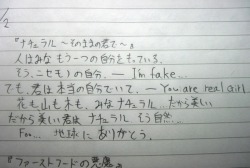 1/2
『ナチュラル 〜そのままの君で〜』
人はみな もう一つの自分をもっている。
そう、ニセモノの自分。― I'm fake...
でも、君は本当の自分でいて。― You are real girl.
花も、山も、木も、みなナチュラル...だから美しい
だから美しい君は ナチュラル そう自然...
Foo... 地球に ありがとう。
『ファーストフードの悪魔』